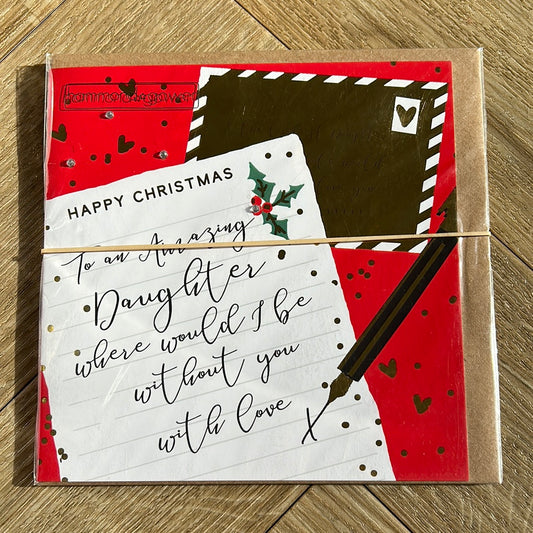 hammond&gower
HAPPY CHRISTMAS
To an Amazing
Daughter
where would I be
without you
with love
X